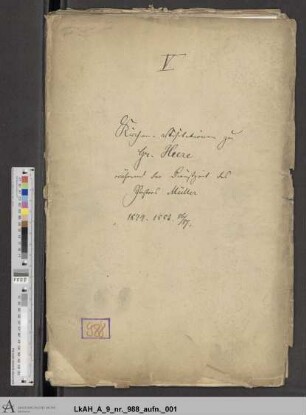 V
Kirchen-Visitationen zu
Gr. Heere
während der Dienstzeit des
Pastors Müller
988
LkAH_A_9_nr._988_aufn._001